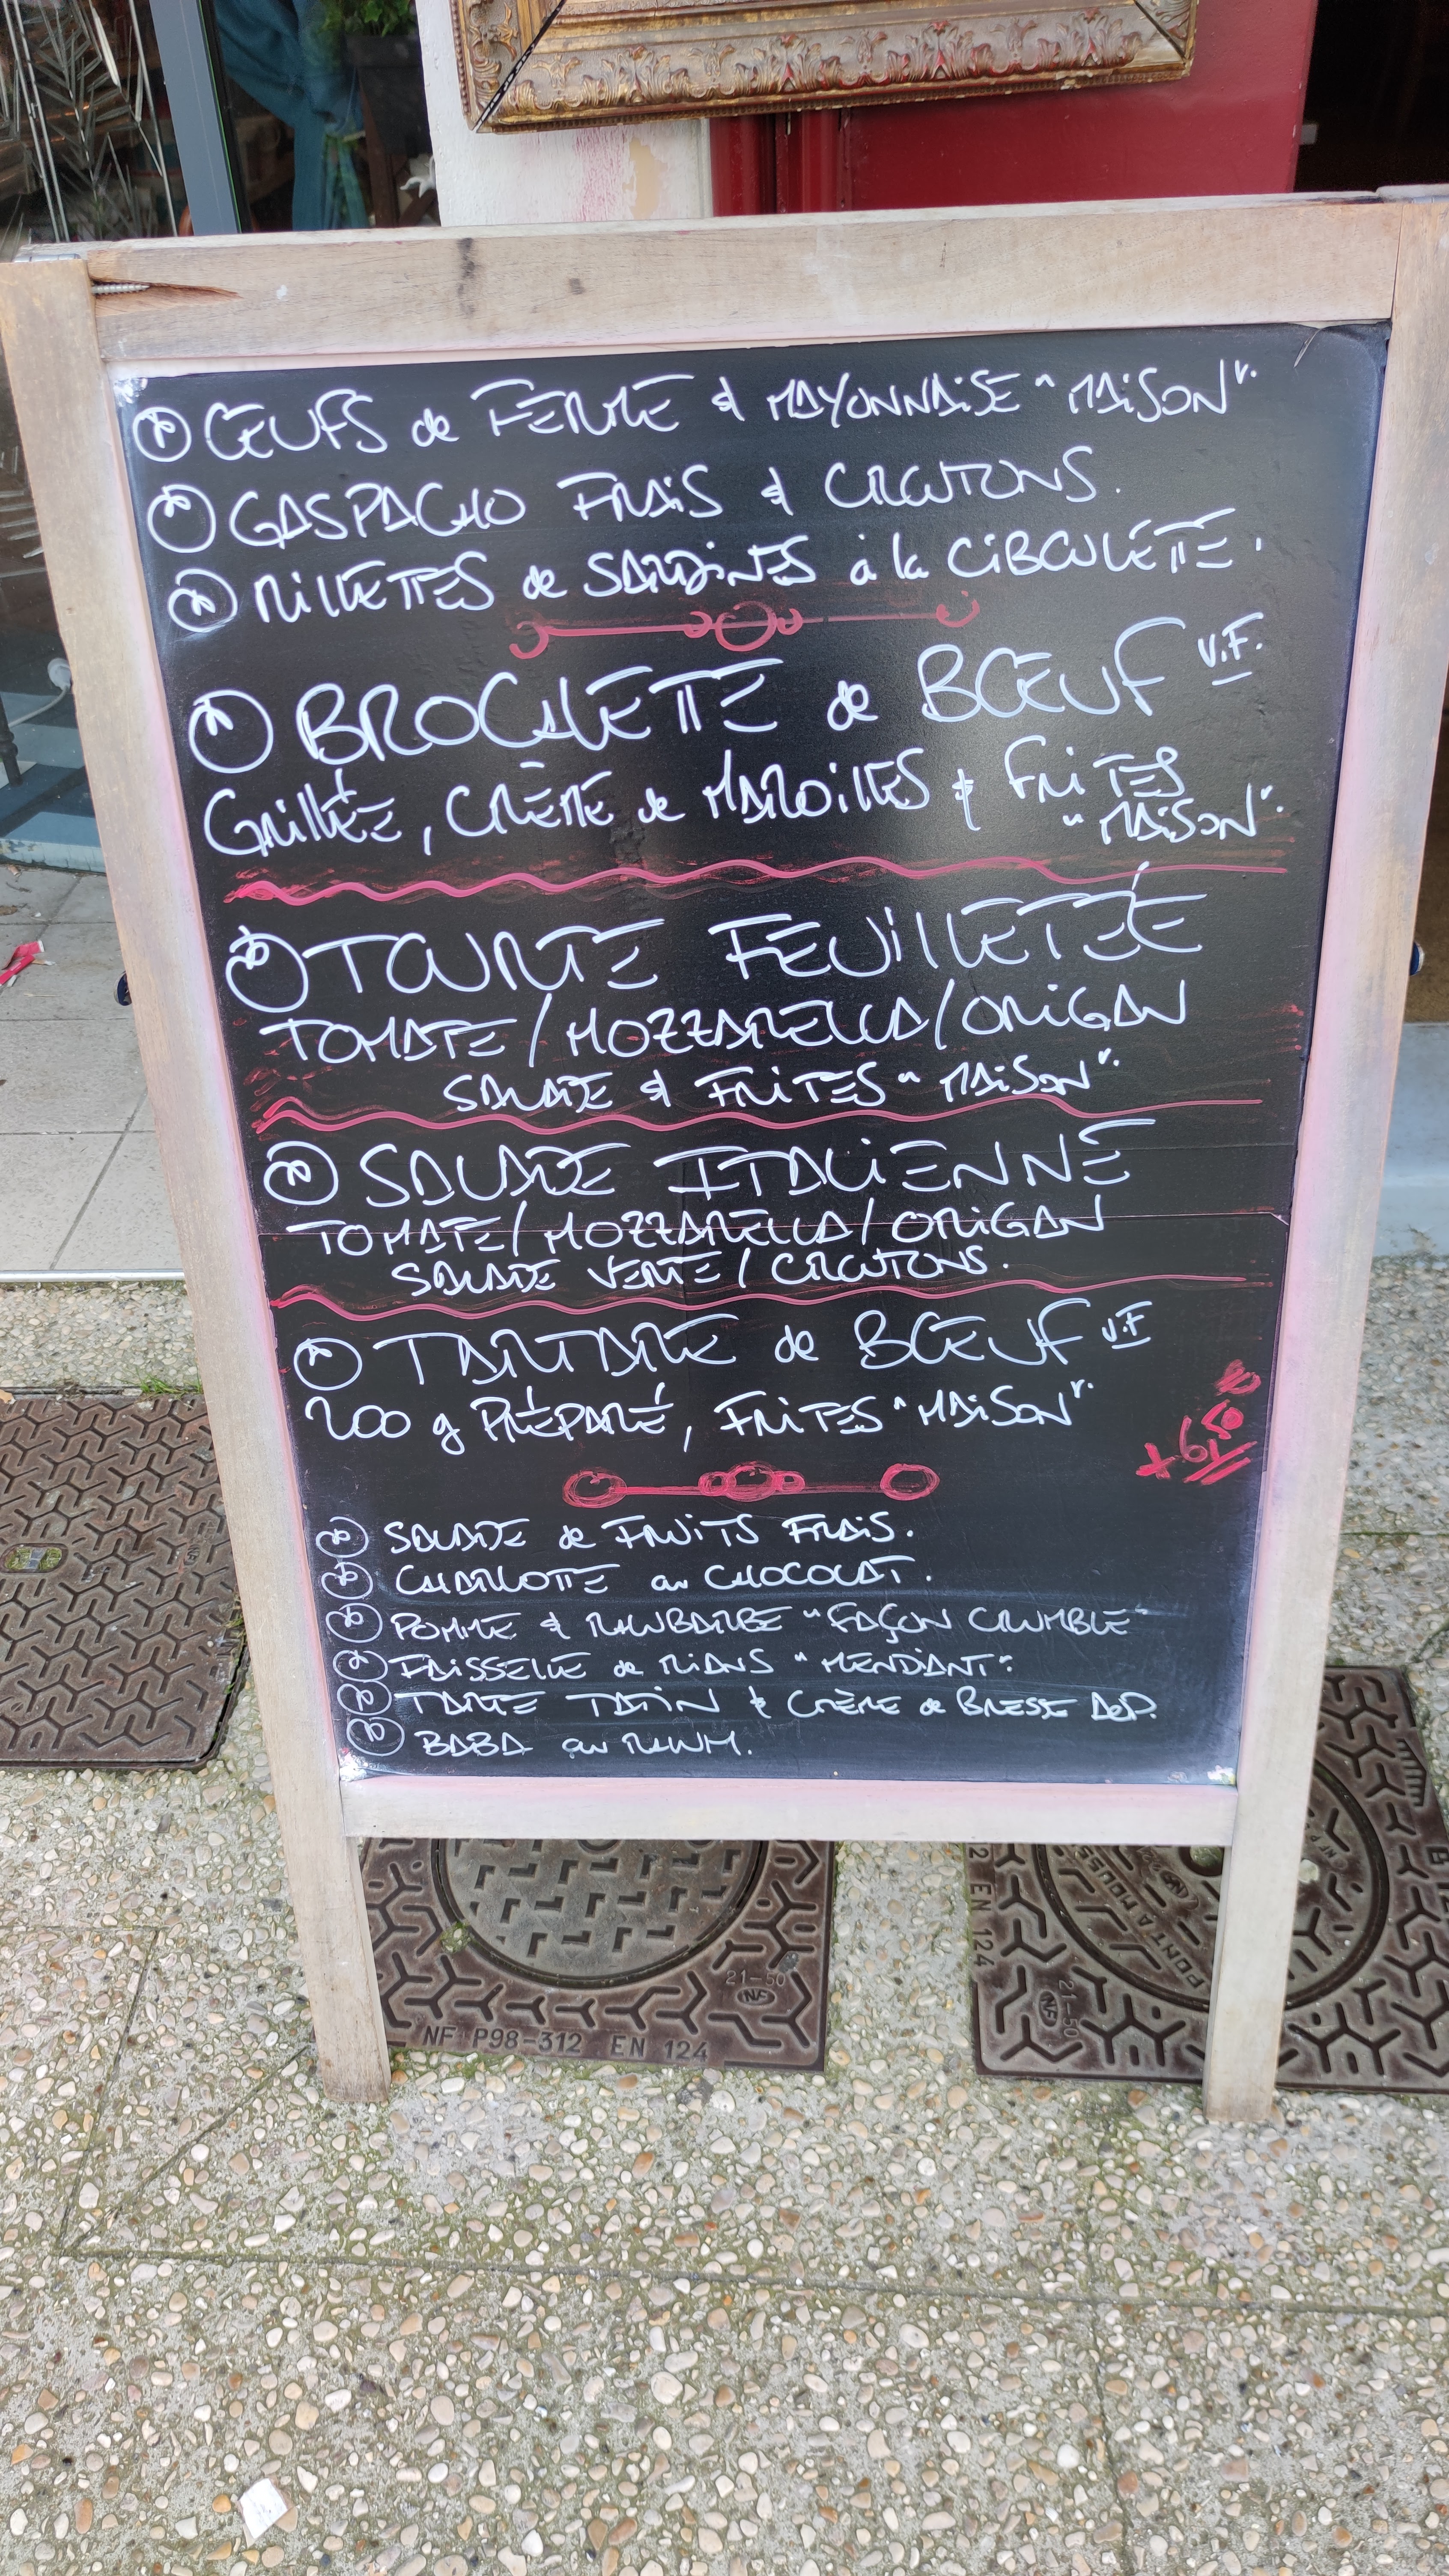 ŒUFS de FERME & MAYONNAISE "MAISON".
GASPACHO FRAIS & CROUTONS.
RILLETTES de SARDINES à la CIBOULETTE.
BROCHETTE de BŒUF V.F.
Grillée, CRÈME de MAROILLES & FRITES
"MAISON".
TOURTE FEUILLETÉE
TOMATE/MOZZARELLA/ORIGAN
SALADE & FRITES "MAISON".
SALADE ITALIENNE
TOMATE/MOZZARELLA/ORIGAN
SALADE VERTE/CROUTONS.
TARTARE de BŒUF V.F
200 g PRÉPARÉ, FRITES "MAISON".
+6,50
SALADE de FRUITS FRAIS.
CHARLOTTE au CHOCOLAT.
POMME & RHUBARBE "FAÇON CRUMBLE"
FAISSELLE de RIANS "MENDIANT".
TARTE TATIN & CRÈME de BRESSE AOP.
BABA au RHUM.
21-50
NF
NF P98-312 EN 124
EN 124
21-50
NF
PONT A MOUSS